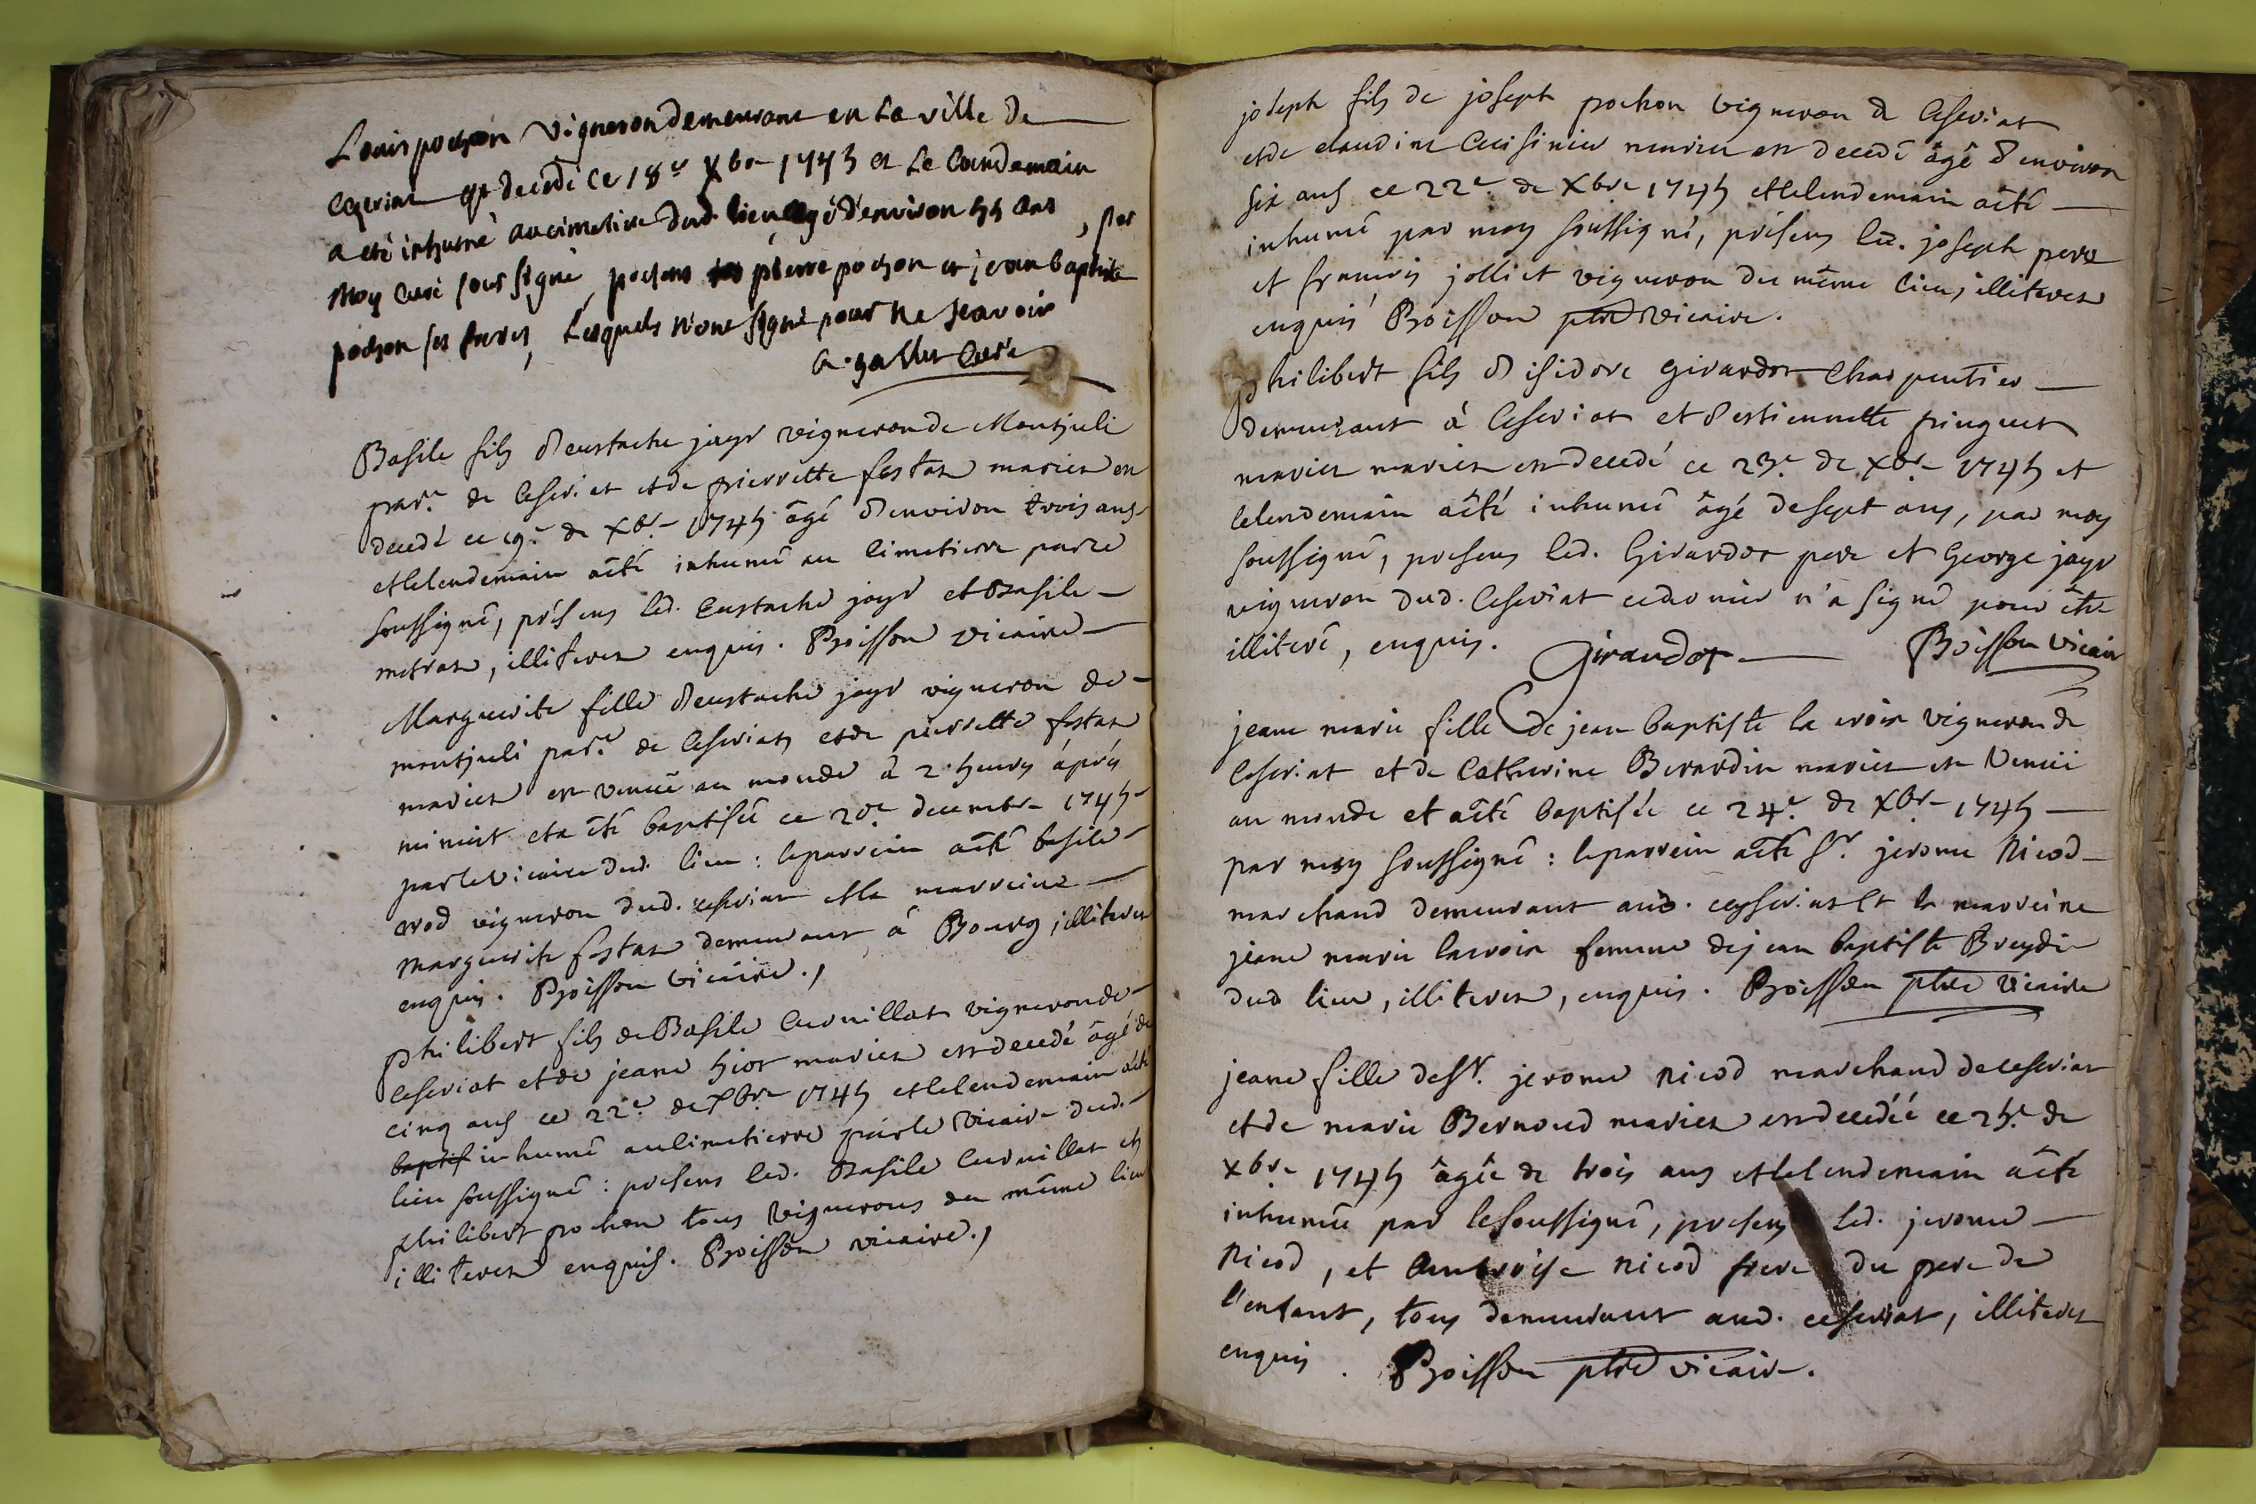 Louis pochon vigneron demeurant en La ville de
Ceseriat est decedé Ce 18e Xbre 1745 et Le Lendemain
a eté inhumé au cimetiere dud. lieu, agé d'environ 55 ans, par
Moy Curé soussigné, presens pierre pochon et jean baptiste
pochon ses freres, Lesquels n'ont signé pour ne scavoir
curé
Basile fils d'eustache jayr vigneron de Montjuli
par.e de Ceseriat et de pierrette fostas mariez est
decedé ce 19.e de Xbre 1745 âgé d'environ trois ans
et le lendemain a été inhumé au Cimetierre par le
soussigné, présens led. Eustache jayr et Basile
metras, illiterez enquis. Boisson vicaire
Marguerite fille d'eustache jayr vigneron de
montjuli par.e de Ceseriat et de pierrette fostas
mariez est venuë au monde à 2 heures áprés
minuit et a été baptisée ce 20e decembre 1745
par le vicaire dud. lieu : le parrein a été basile
vigneron dud. ceseriat et la marreine
Marguerite fostas demeurant à Bourg, illiterez
enquis. Boisson vicaire.,
philibert fils de Basile Curnillat vigneron de
Ceseriat et de jeane hior mariez est decedé âgé de
cinq ans ce 22e de Xbre 1745 et le lendemain a été
baptis inhumé au Cimetierre par le vicaire dud.
lieu soussigné : presens led. Basile Curnillat et
philibert pochon tous vignerons du même lieu
illiterez enquis. Boisson vicaire.,
joseph fils de joseph pochon vigneron de Ceseriat
et de claudine Cuisinier mariez est decedé âgé d'environ
six ans ce 22e de Xbre 1745 et le lendemain a été
inhumé par moy soussigné, présens led. joseph pere
et francois jolliet vigneron du même lieu, illiterez
enquis Boisson ptre vicaire.
philibert fils d'isidore girardot Charpentier
demeurant à Ceseriat et d'estiennette pinguet
mariez mariez est decedé ce 23e de Xbre 1745 et
le lendemain a été inhumé âgé de sept ans, par moy
soussigné, presens led. Girardot pere et George jayr
vigneron dud. Ceseriat ce dernier n'a signé pour être
illiteré, enquis. Girardot Boisson vicaire
jeane marie fille de jean baptiste la croix vigneron de
Ceseriat et de Catherine Berardin mariez est venuë
au monde et a été baptisée ce 24e de Xbre 1745
par moy soussigné : le parrein a été Sr. jerome Nicod
marchand demeurant aud. ceyseriat et la marreine
jeane marie lacroix femme de jean baptiste Breydi
dud lieu, illiterez, enquis. Boisson ptre vicaire
jeane fille de Sr. jerome Nicod marchand de ceseriat
et de marie Bernoud mariez est decedée ce 25e de
Xbre 1745 âgée de trois ans et le lendemain a été
inhumée par le soussigné, presens led. jerome
Nicod, et Ambroise Nicod frere du pere de
l'enfant, tous demeurant aud. ceseriat, illiterez
enquis. Boisson ptre vicaire.